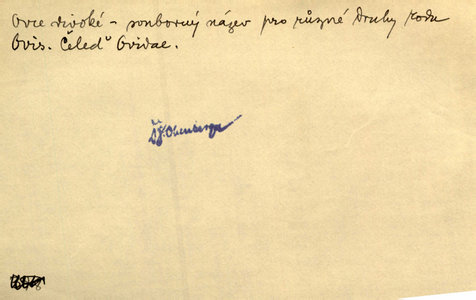 Ovce divoké - souborný název pro různé druhy rodu
Ovis. Čeleď Ovidae.
Obenberger